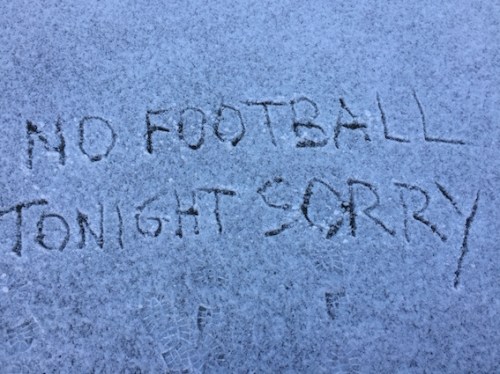 NO FOOTBALL
TONIGHT SORRY